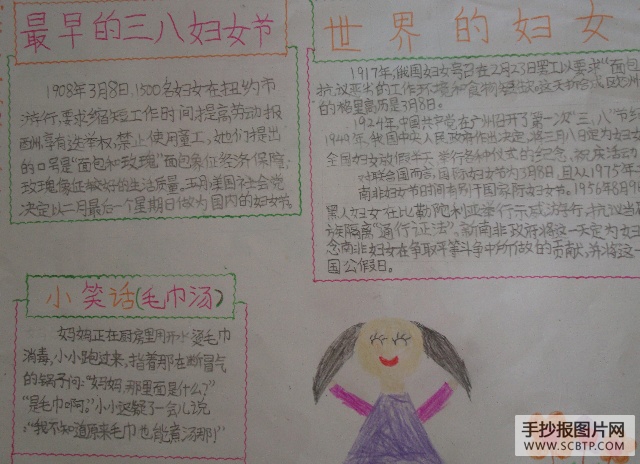 最早的三八妇女节
1908年3月8日,1500名妇女在扭约市
游行,要求缩短工作时间,提高劳动报
酬,享有选举权,禁止使用童工,她们提出
的口号是“面包和玫瑰”面包象征经济保障,
玫瑰像征较好的生活质量,五月,美国社会党
决定以二月最后一个星期日做为国内的妇女节。
世界的妇女
1917年,俄国妇女号召在2月23日罢工以要求“面包
抗议恶劣的工作环境和食物
的格里高历是3月8日。
1924年,中国共产党在广州召开了第一次“三、八”节
1949年,我国中央人民政府作出决定,将三月八日定为妇女
全国妇女放假半天,举行各种仪式的纪念、祝庆活动
对联合国而言,国际妇女节为3月8日,且从1975年
南非妇女节时间有别于国际妇女节。1956年8月9
黑人妇女在比勒陀利亚举行示威游行,抗议当
族隔离“通行证法”,新南非政府将这一天定为妇
念南非妇女在争取平等斗争中所做的贡献,并将这一
国公假日。
小笑话(毛巾汤)
妈妈正在厨房里用开水煮毛巾
消毒,小小跑过来,指着那在断冒气
的锅子问:“妈妈,那里面是什么?”
“是毛巾啊。”小小迟疑了一会儿说
:“我不知道原来毛巾也能煮汤那!”
手抄报图片网
WWW.SCBTP.COM